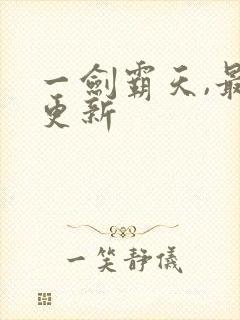 一劍霸天,最
更新
一笑靜儀